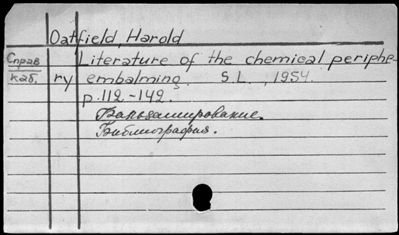 Oatfield, Harold
Справ Literature of the chemical periphe-
каб. ry embalming. S.L., 1954.
p.112-142.
Бальзамирование.
Библиография.